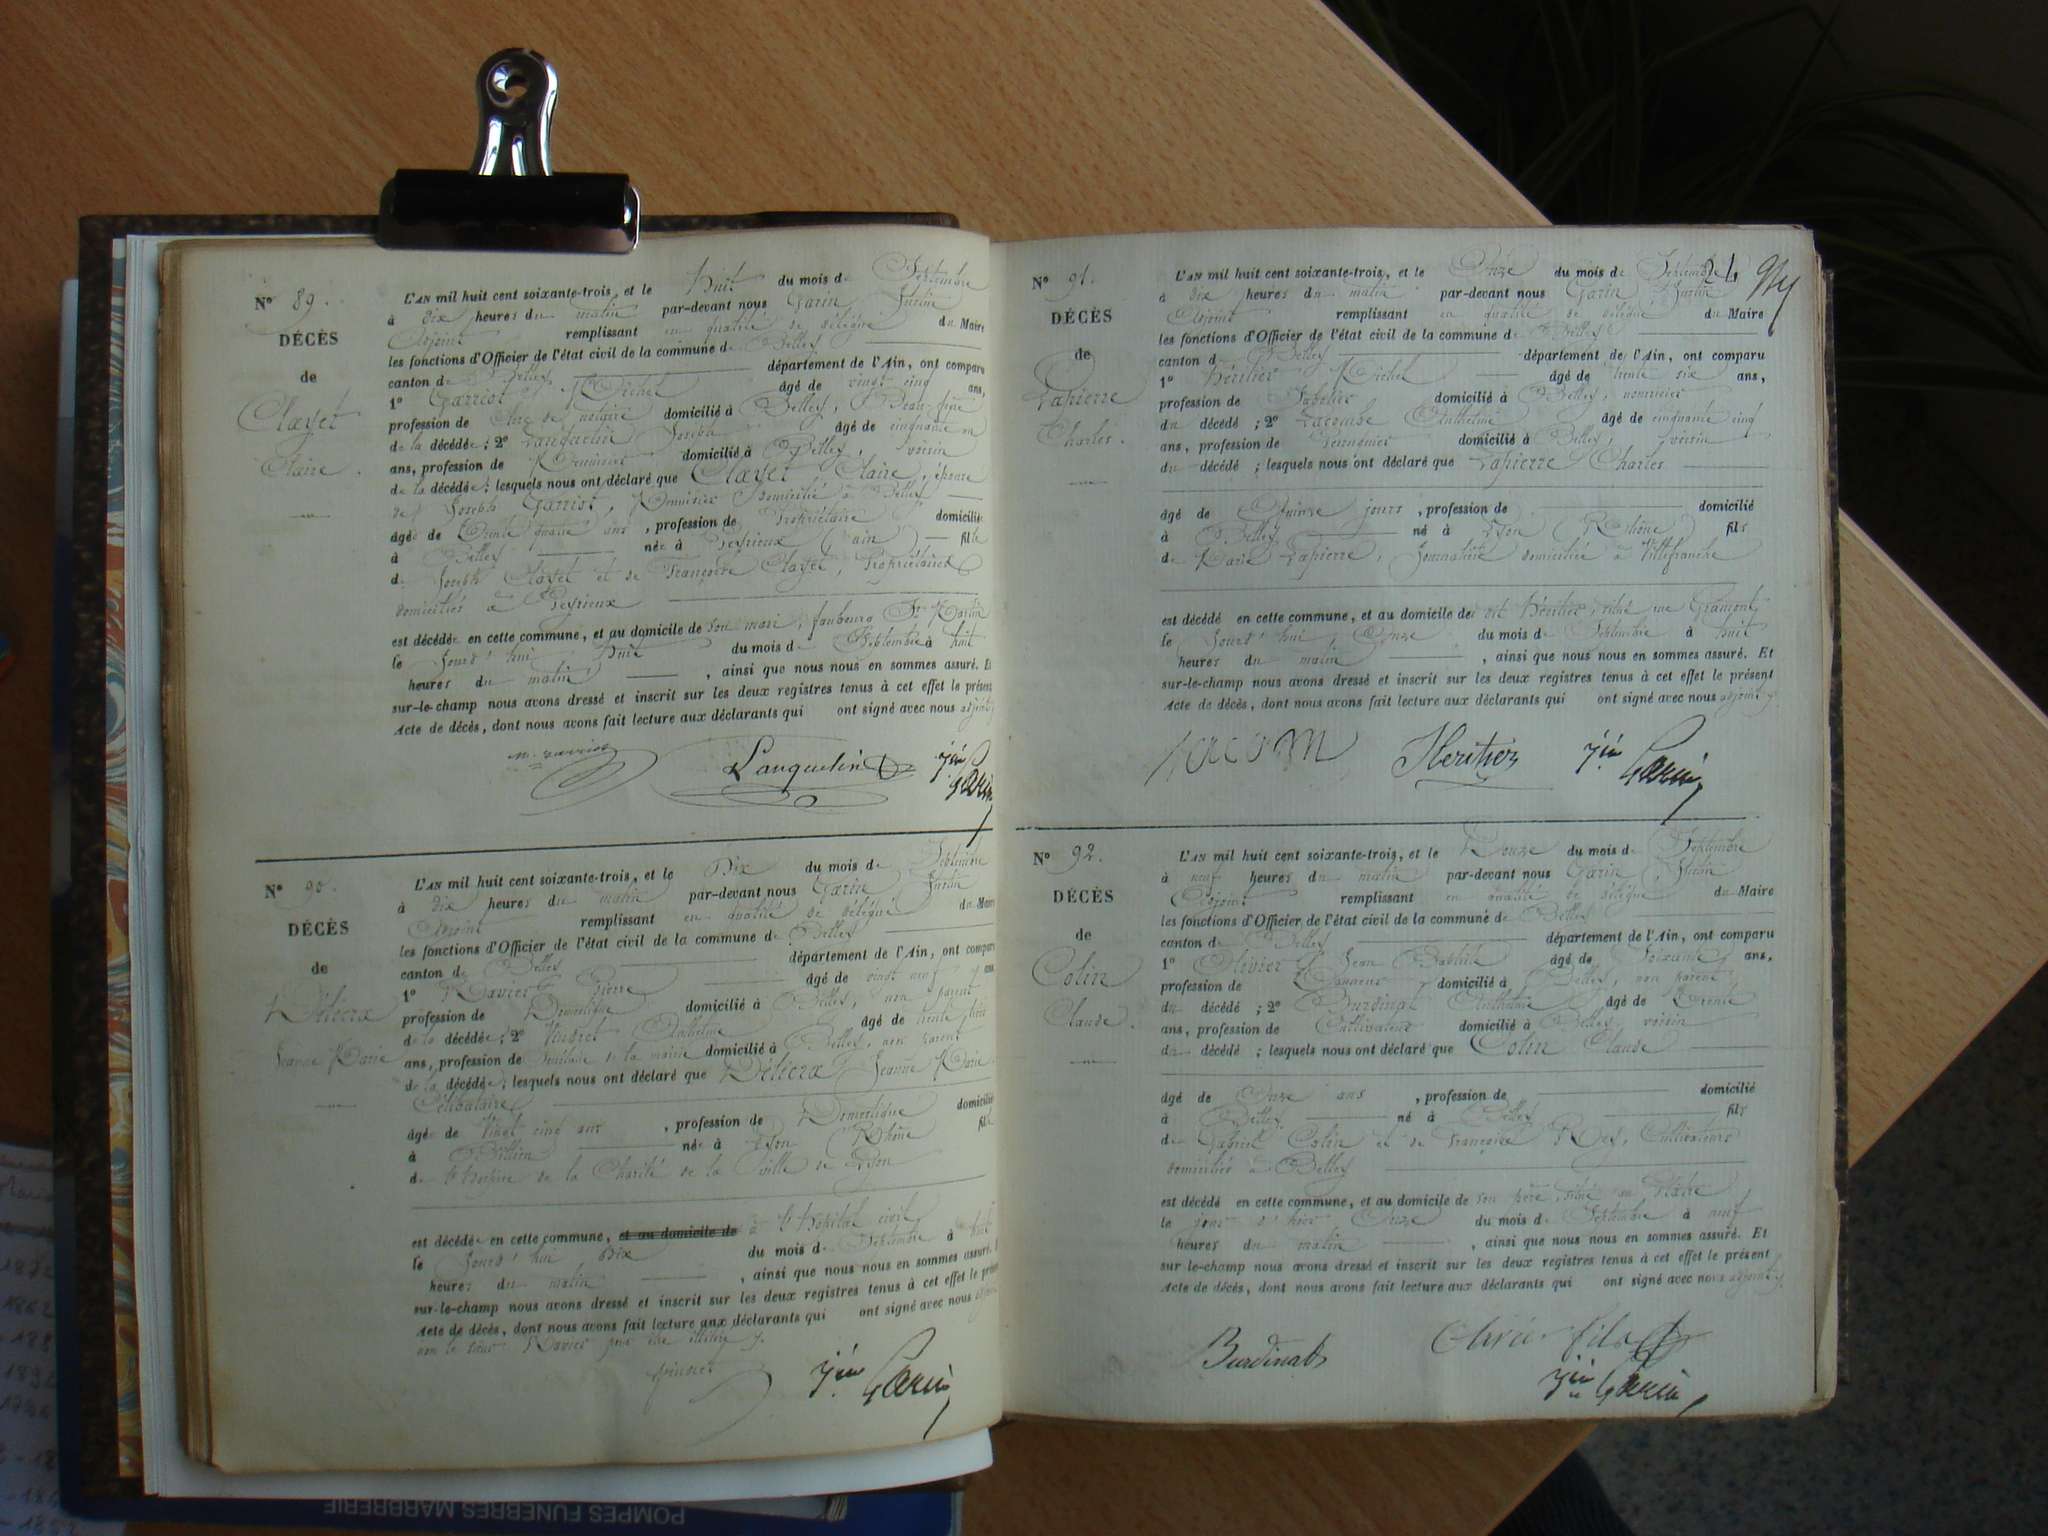 N° 89.
DÉCÈS
de
Clayet
Claire.
L'AN mil huit cent soixante-trois, et le huit du mois de Septembre
à dix heures du matin par-devant nous Garin Justin
Adjoint remplissant en qualité de délégué du Maire
les fonctions d'Officier de l'état civil de la commune de Belley
canton de Belley département de l'Ain, ont comparu
1° Garriot Michel âgé de vingt cinq ans,
profession de Clerc de notaire domicilié à Belley, Beau-frère
de la décédée; 2° Lanquetin Joseph âgé de cinquante un
ans, profession de Menuisier domicilié à Belley, voisin
de la décédée; lesquels nous ont déclaré que Clayet Claire, épouse
de Joseph Garriot, Menuisier domicilié à Belley
âgée de trente quatre ans, profession de Propriétaire domicilié
à Belley née à Peyrieux (ain) fille
de Joseph Clayet et de Françoise Clayet, Propriétaires
domiciliés à Peyrieux
est décédée en cette commune, et au domicile de son mari, faubourg St Martin
le jourd'hui huit du mois de Septembre à huit
heures du matin, ainsi que nous nous en sommes assuré. Et
sur-le-champ nous avons dressé et inscrit sur les deux registres tenus à cet effet le présent
Acte de décès, dont nous avons fait lecture aux déclarants qui ont signé avec nous adjoint
Lanquetin
Jin Garin
N° 90.
DÉCÈS
de
Délécra
Jeanne Marie
L'AN mil huit cent soixante-trois, et le Dix du mois de Septembre
à dix heures du matin par-devant nous Garin Justin
Adjoint remplissant en qualité de délégué du Maire
les fonctions d'Officier de l'état civil de la commune de Belley
canton de Belley département de l'Ain, ont comparu
1° Ravier Pierre âgé de vingt neuf ans
profession de Domestique domicilié à Belley, non parent
de la décédée; 2° Anthelme âgé de trente huit
ans, profession de de la mairie domicilié à Belley, non parent
de la décédée; lesquels nous ont déclaré que Délécra Jeanne Marie
Célibataire
âgée de Vingt cinq ans, profession de Domestique domicilié
à née à Lyon Rhône fille
de l'hospice de la Charité de la ville de Lyon
est décédée en cette commune, et au domicile de à l'hôpital civil
le Jourd'hui Dix du mois de Septembre à huit
heures du matin, ainsi que nous nous en sommes assuré.
sur-le-champ nous avons dressé et inscrit sur les deux registres tenus à cet effet le présent
Acte de décès, dont nous avons fait lecture aux déclarants qui ont signé avec nous adjoint
non le sieur Ravier pour être illitéré
Jin Garin
24
N° 91.
DÉCÈS
de
Lapierre
Charles.
L'AN mil huit cent soixante-trois, et le Onze du mois de Septembre
à dix heures du matin par-devant nous Garin Justin
Adjoint remplissant en qualité de délégué du Maire
les fonctions d'Officier de l'état civil de la commune de Belley
canton de Belley département de l'Ain, ont comparu
1° Héritier Michel âgé de trente six ans,
profession de Sabotier domicilié à Belley, nourricier
du décédé; 2° Lacombe Anthelme âgé de cinquante cinq
ans, profession de domicilié à Belley, voisin
du décédé; lesquels nous ont déclaré que Lapierre Charles
âgé de Quinze jours, profession de domicilié
à Belley né à Lyon (Rhône) fils
de Marie Lapierre, Journalière domiciliée à Villefranche
est décédé en cette commune, et au domicile de dit Héritier, situé rue Gramont,
le Jourd'hui Onze du mois de Septembre à huit
heures du matin, ainsi que nous nous en sommes assuré. Et
sur-le-champ nous avons dressé et inscrit sur les deux registres tenus à cet effet le présent
Acte de décès, dont nous avons fait lecture aux déclarants qui ont signé avec nous adjoint
lacom Heritier Jin Garin
N° 92.
DÉCÈS
de
Colin
Claude.
L'AN mil huit cent soixante-trois, et le Douze du mois de Septembre
à neuf heures du matin par-devant nous Garin, Justin
Adjoint remplissant en qualité de délégué du Maire
les fonctions d'Officier de l'état civil de la commune de Belley
canton de Belley département de l'Ain, ont comparu
1° Olivier Jean Baptiste âgé de Soixante ans,
profession de domicilié à Belley, non parent
du décédé; 2° Burdinat Anthelme âgé de Trente
ans, profession de Cultivateur domicilié à Belley voisin
du décédé; lesquels nous ont déclaré que Colin Claude
âgé de Onze ans, profession de domicilié
à Belley né à Belley fils
de Gabriel Colin et de Françoise Rey, Cultivateurs
domiciliés à Belley
est décédé en cette commune, et au domicile de son père, situé au
le jour d'hier Onze du mois de Septembre à neuf
heures du matin, ainsi que nous nous en sommes assuré. Et
sur-le-champ nous avons dressé et inscrit sur les deux registres tenus à cet effet le présent
Acte de décès, dont nous avons fait lecture aux déclarants qui ont signé avec nous adjoint
Burdinat fils
Jin Garin
POMPES FUNEBRES MARBRERIE